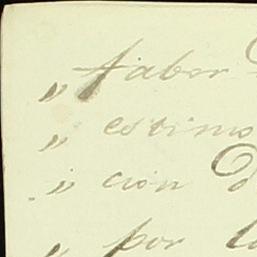 „ tabor
„ estimo
„ cion d
„ por la